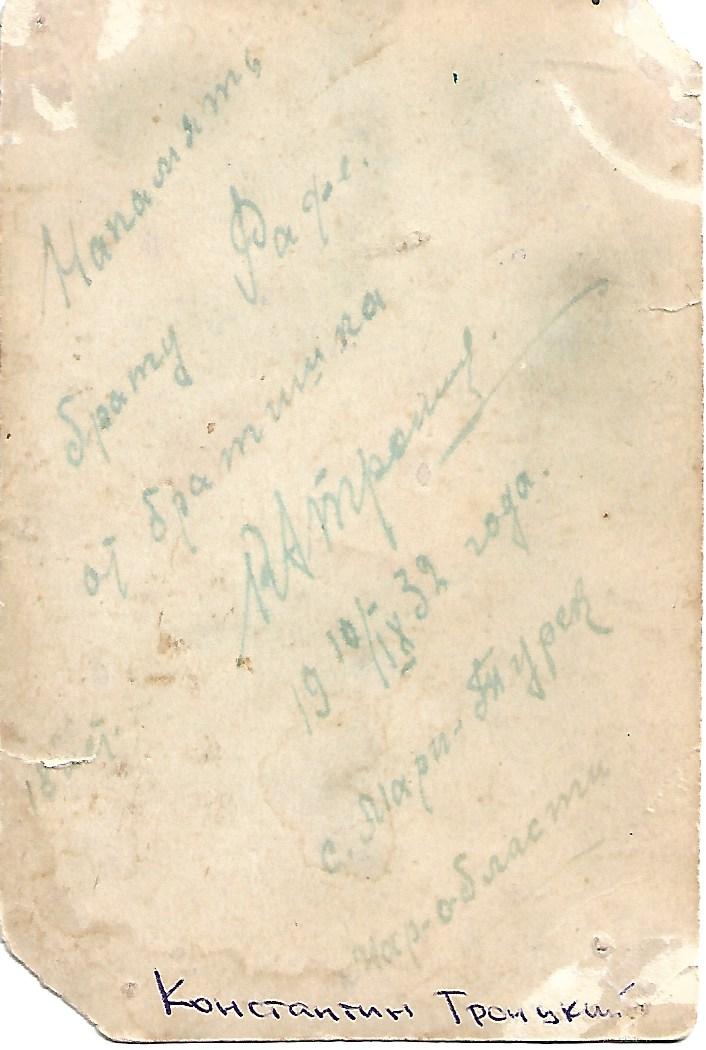 Напамять
брату Рафе.
от братишка
КАТроиц
19 10/IX 32 года.
18 лет.
с. Мари-Турек
Мар-области
Константин Троицкий